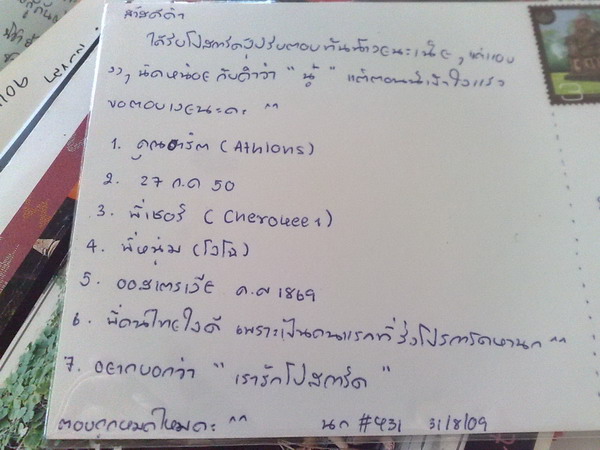 สวัสดีค่ะ
ได้รับโปสการ์ดปุ๊บรีบตอบทันที เลยนะเนี่ย, แต่แอบ
งงๆ นิดหน่อย กับคำว่า " นู๋ " แต่ตอนนี้เข้าใจแล้ว
ขอตอบเลยนะคะ ^^
1. คุณอาร์ต (Athlons)
2. 27 ก.ค 50
3. พี่เชอรี่ (Cherokee1)
4. พี่หนุ่ม (โจโฉ)
5. ออสเตรเลีย ค.ศ 1869
6. พี่คนไทยใจดี เพราะเป็นคนแรกที่ส่งโปสการ์ดหานก ^^
7. อยากบอกว่า " เรารักโปสการ์ด "
ตอบถูกหมดไหมคะ ^^ นก #431 31/8/09
3